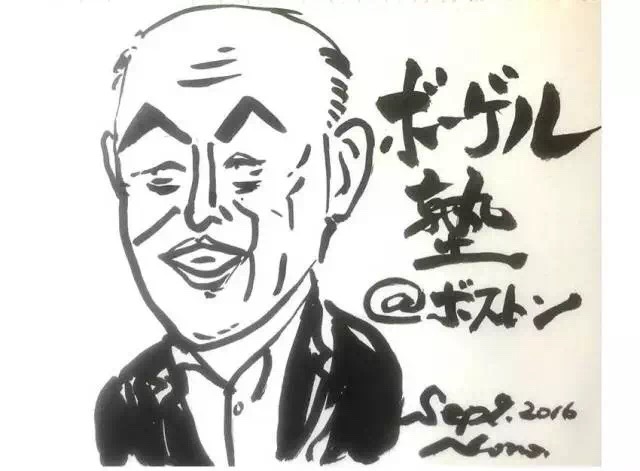 ボーゲル
塾
@ボストン
Sep 9. 2016